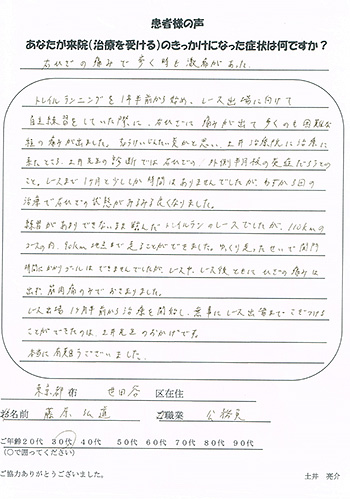 患者様の声
あなたが来院(治療を受ける)のきっかけになった症状は何ですか?
右ひざの痛みで歩く時も激痛があった。
トレイルランニングを1年半前から始め、レース出場に向けて
自主練習をしていた際に、右ひざに痛みが出て歩くのも困難な
程の痛みが出ました。もうりいじんたい炎かと思い、土井治療院に治療に
来たところ、土井先生の診断では右ひざの外側半月板の炎症だろうとの
こと。レースまで1ヶ月と少ししか時間はありませんでしたが、わずか3回の
治療で右ひざの状態がみるみる良くなりました。
練習があまりできないまま臨んだトレイルランのレースでしたが、110kmの
コースの内、80km地点まで走ることができました。ゆっくり走ったせいで関門
時間にかかりゴールはできませんでしたが、レース中、レース後ともにひざの痛みは
出ず、筋肉痛のみでおさまりました。
レース出場1ヶ月半前から治療を開始し、無事にレース出場までこぎつける
ことができたのは、土井先生のおかげです。
本当に有難うございました。
東京都 世田谷 区在住
お名前 藤原弘道 ご職業 公務員
ご年齢20代 30代 40代 50代 60代 70代 80代 90代
(○で囲ってください)
ご協力ありがとうございました。 土井 亮介